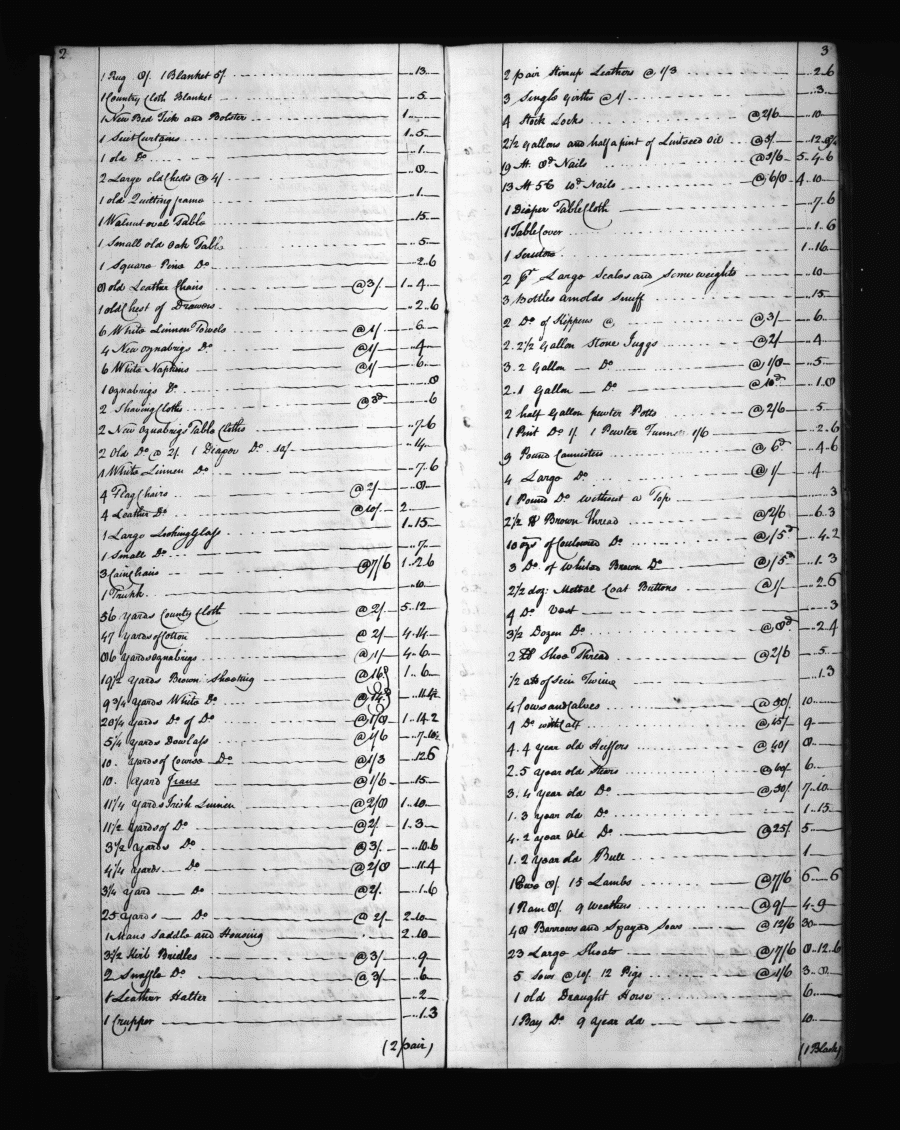 2
1 Rug 8/. 1 Blanket 5/ - - 13 -
1 Country Cloth Blanket - - 5 -
1 New Bed Tick and Bolster 1 - -
1 Suit Curtains 1 - 5 -
1 old Do - - 1 -
2 Large old Chests @ 4/ - - 8 -
1 old Quilting frame - - 1 -
1 Walnut oval Table - - 15 -
1 Small old Oak Table - - 5 -
1 Square Pine Do - - 2 - 6
8 old Leather Chairs @ 3/ 1 - 4 -
1 old Chest of Drawers - - 2 - 6
6 White Linnen Towels @ 1/ - 6 -
4 New oznabrigs Do @ 1/ - 4 -
6 White Napkins @ 1/ - 6 -
1 oznabrigs Do - - 8
2 Shaving Cloths @ 3d - - 6
2 New oznabrigs Table Cloths - - 7 - 6
2 Old Do @ 2/. 1 Diaper Do 10/ - - 14 -
1 White Linnen Do - - 7 - 6
4 Flag Chairs @ 2/ - - 8 -
4 Leather Do @ 10/. 2 - -
1 Large Looking Glass 1 - 15 -
1 Small Do - - 7 -
3 Cain Chairs @ 7/6 1 - 2 - 6
1 Trunk - - 10 -
56 Yards Country Cloth @ 2/. 5 - 12 -
47 Yards of Cotton @ 2/ 4 - 14 -
86 Yards oznabrigs @ 1/ 4 - 6 -
19 1/2 Yards Brown Sheeting @ 16d 1 - 6 -
9 3/4 Yards White Do @ 14d - 11 - 4 1/2
20 1/4 Yards Do of Do @ 1/8 1 - 14 - 2
5 1/4 Yards Dowlass @ 1/6 - 7 - 10 1/2
10 Yards of Course Do @ 1/3 - 12 6
10 Yard Jeans @ 1/6 - 15 -
11 1/4 Yards Irish Linnen @ 2/8 1 - 10 -
11 1/2 Yards of Do @ 2/. 1 - 3 -
3 1/2 Yards Do @ 3/. - 10 - 6
4 1/4 Yards Do @ 2/8 - 11 - 4
3/4 Yard Do @ 2/. - 1 - 6
25 Yards Do @ 2/. 2 - 10 -
1 Mans Saddle and Housing 2 - 10 -
3 1/2 Kirb Bridles @ 3/ - 9 -
2 Snaffle Do @ 3/ - 6 -
1 Leather Halter - 2 -
1 Crupper - 1 - 3
(2 pair)
3
2 pair Stirrup Leathers @ 1/3 - 2 - 6
3 Single Girths @ 1/ - 3 -
4 Stock Locks @ 2/6 - 10 -
2 1/2 Gallons and half a pint of Lintseed Oil @ 5/ - 12 - 9 3/4
19 M. 8d Nails @ 5/6 5 - 4 - 6
13 M 56 10d Nails @ 6/8 4 - 10 -
1 Diaper Table Cloth - 7 - 6
1 Table Cover - 1 - 6
1 Scrutore 1 - 16 -
2 pr Large Scales and Some weights - 10 -
3 Bottles Arnolds Snuff - 15 -
2 Do of Kippens @ @ 3/ - 6 -
2. 2 1/2 Gallon Stone Juggs @ 2/ - 4 -
3. 2 Gallon Do @ 1/8 - 5 -
2. 1 Gallon Do @ 10d - 1 - 8
2 half Gallon pewter Potts @ 2/6 - 5 -
1 Pint Do 1/. 1 Pewter Tunnel 1/6 - 2 - 6
9 Pound Cannisters @ 6d - 4 - 6
4 Large Do @ 1/ - 4
1 Pound Do without a Top - - 3
2 1/2 lb Brown Thread @ 2/6 - 6 - 3
10 ozs of Couloured Do @ 1/5d - 4 - 2
3 Do of Whited Brown Do @ 1/5d - 1 - 3
2 1/2 doz: Mettal Coat Buttons @ 1/ - 2 - 6
4 Do Vest - - 3
3 1/2 Dozen Do @ 8d - 2 - 4
2 lb Shoe Thread @ 2/6 - 5 -
1/2 of Sein Twine - 1 - 3
4 Cows and Calves @ 50/ 10 - -
4 Do with Calf @ 45/ 9 -
4. 4 year old Heiffers @ 40/ 8 -
2. 5 year old Steers @ 60/ 6 -
3. 4 year old Do @ 50/ 7 - 10 -
1. 3 year old Do 1 - 15 -
4. 2 year Old Do @ 25/ 5 -
1. 2 year old Bull 1 -
1 Ewe 8/. 15 Lambs @ 7/6 6 - - 6
1 Ram 8/. 9 Weathers @ 9/ 4 - 9 -
48 Barrows and Spayed Sows @ 12/6 30 -
23 Large Shoats @ 7/6 8 - 12 - 6
5 Sows @ 10/. 12 Pigs @ 1/6 3 - 8 -
1 old Draught Horse 6 -
1 Bay Do 9 year old 10 -
(1 Black)